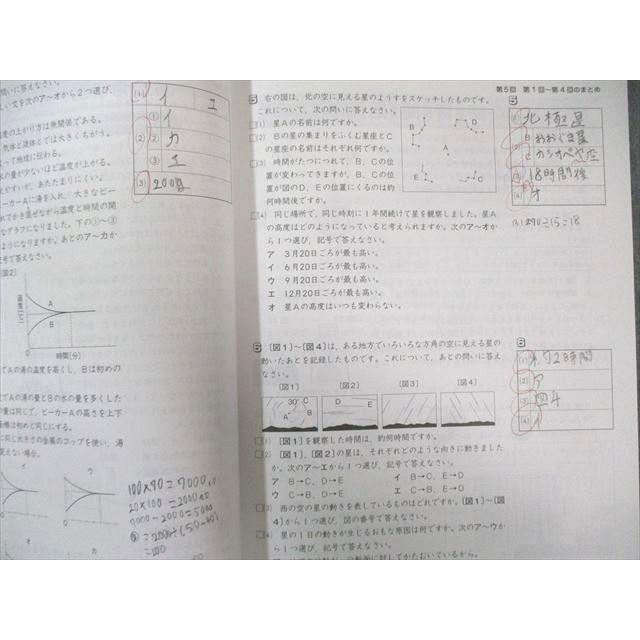 に答えなさい。
しい文を次のア〜オから2つ選び，
度の上がり方は無関係である。
気体と液体とでは大きくちがう。
って地球に伝わる。
水の量が少ないほど温度が上がる。
えやすいが，あたたまりにくい。
ーカーAに湯を入れ，大きなビー
れてかき混ぜながら温度と時間の関
なグラフになりました。下の①〜③
ようになりますか。あとのア〜カか
号で答えなさい。
図2〕
温度〔℃〕
A
B
時間〔分〕
てAの湯の温度を高くし，Bは初めの
てAの湯の量とBの水の量を多くした
の量は同じで，ビーカーAの高さを上下
面積は初めと同じにする。
に同じ大きさの金属のコップを使い，湯
変えない場合。
イ
ウ
オ
カ
(1) イ エ
① イ
(2) ② カ
③ エ
(3) 200g
100×90=9000
20×100=2000
第5回 第1回〜第4回のまとめ
5 右の図は，北の空に見える星のようすをスケッチしたものです。
これについて，次の問いに答えなさい。
(1) 星Aの名前は何ですか。
(2) Bの星の集まりをふくむ星座とC
の星座の名前はそれぞれ何ですか。
(3) 時間がたつにつれて，B，Cの位
置が変わってきますが，B，Cの位
置が図のD，Eの位置にくるのは約
何時間後ですか。
B
C
D
A
E
(4) 同じ場所で，同じ時刻に1年間続けて星を観察しました。星A
の高度はどのようになっていると考えられますか。次のア〜オか
ら1つ選び，記号で答えなさい。
ア 3月20日ごろが最も高い。
イ 6月20日ごろが最も高い。
ウ 9月20日ごろが最も高い。
エ 12月20日ごろが最も高い。
オ 星Aの高度はいつも変わらない。
5
(1) 北極星
(2) B おおぐま座
C カシオペヤ座
(3) 18時間後
(4) オ
(3) 270÷15=18
6 〔図1〕〜〔図4〕は，ある地方でいろいろな方角の空に見える星の
動いたあとを記録したものです。これについて，あとの問いに答え
なさい。
〔図1〕 〔図2〕 〔図3〕 〔図4〕
30° C
A B
D E
(1) 〔図1〕を観察した時間は，約何時間ですか。
(2) 〔図1〕，〔図2〕の星は，それぞれどのような向きに動きました
か。次のア〜エから1つ選び，記号で答えなさい。
ア B→C，D→E イ B→C，E→D
ウ C→B，D→E エ C→B，E→D
(3) 西の空の星の動きを表しているものはどれですか。〔図1〕〜〔図
4〕から1つ選び，図の番号で答えなさい。
(4) 星の1日の動きが生じるおもな原因は何ですか。次のア〜ウか
ら1つ選び，記号で答えなさい。
6
(1) 約2時間
(2) ア
(3) 図4
(4) イ